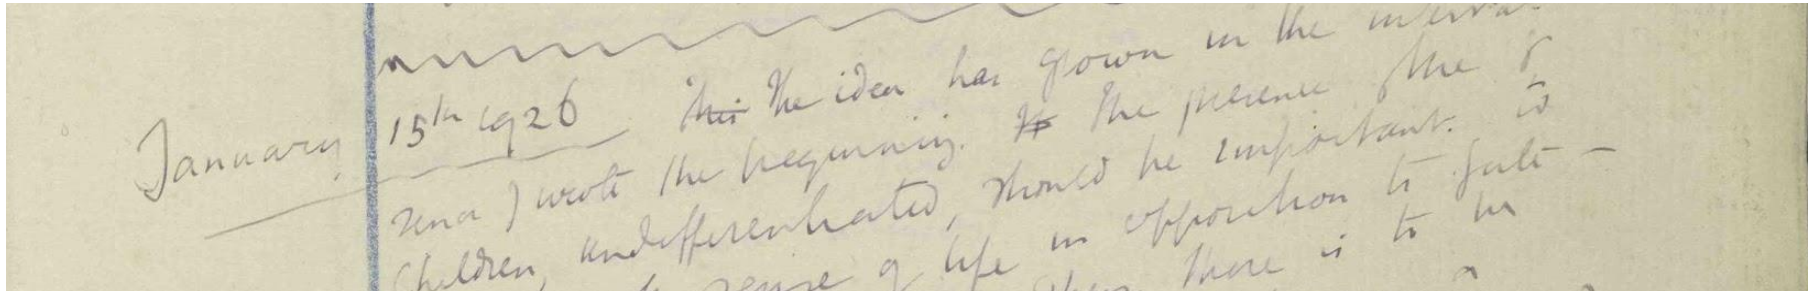 January 15th 1926 This The idea has grown in the interval
since I wrote the beginning. The presence of the 8
children, undifferentiated, should be important to
sense of life in opposition to fate –
there is to be